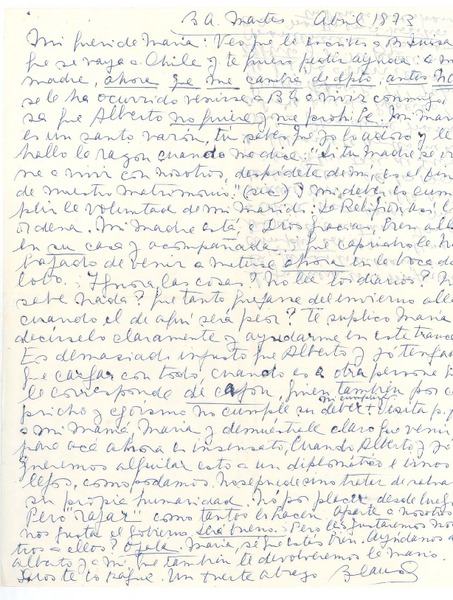 BA. Martes Abril 1973
Mi querida María: Veo que le escribes a B Luisa
que se vaya a Chile y te quiero pedir ayuda: a mi
madre, ahora que me cambié de dpto, antes no
se le ha ocurrido venirse a BA a vivir conmigo
sea que Alberto no quiere y me prohibe. Mi marido
es un santo varón, tú sabes que yo lo adoro y le
hallo la razón cuando me dice: "si tu madre se vi
ne a vivir con nosotros, despídete de mí, es el fin
de nuestro matrimonio" (sic) y mi deber es cum
plir la voluntad de mi marido; la Religión así lo
ordena. Mi madre está a Dios gracias, bien allá
en su casa y acompañada. Qué capricho le ha
bajado de venir a meterse ahora en la boca del
lobo. ¿Ignora las cosas? No lee los diarios? No
sabe nada? Qué tanto quejarse del invierno allá
cuando el de aquí será peor? Te suplico María
decírselo claramente y ayudarme en este trance
Es demasiado injusto que Alberto y yo tengamos
que cargar con todo, cuando es a otra persona
le corresponde de cajón, quien también por ca
pricho y egoísmo no cumple su deber.
a mi Mamá, María y demuéstrale claro que venir
para acá ahora es insensato, Cuando Alberto y yo
queremos alquilar esto a un diplomático e irnos
lejos, como podamos. No se puede sino tratar de salvar
su propia humanidad. No por placer desde luego
Pero "rajar" como tantos lo hacen aparte a nosotros
nos gusta el gobierno, será bueno. ¿Pero les gustamos noso
tros a ellos? Ojalá. María, sé que estás bien. Ayúdanos a
Alberto y a mí, que también te devolveremos la mano.
Dios te lo pague. Un fuerte abrazo Blanca